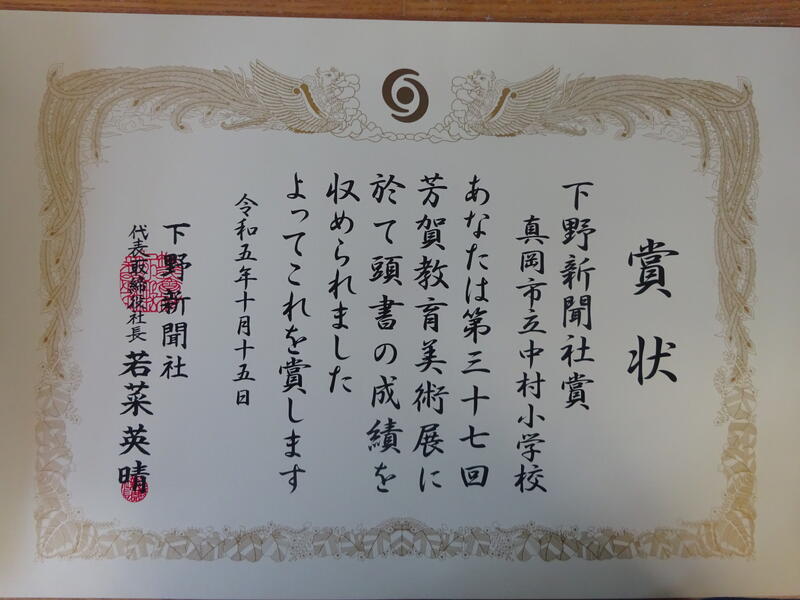 賞状
下野新聞社賞
真岡市立中村小学校
あなたは第三十七回
芳賀教育美術展に
於て頭書の成績を
収められました
よってこれを賞します
令和五年十月十五日
下野新聞社
代表取締役社長 若菜英晴